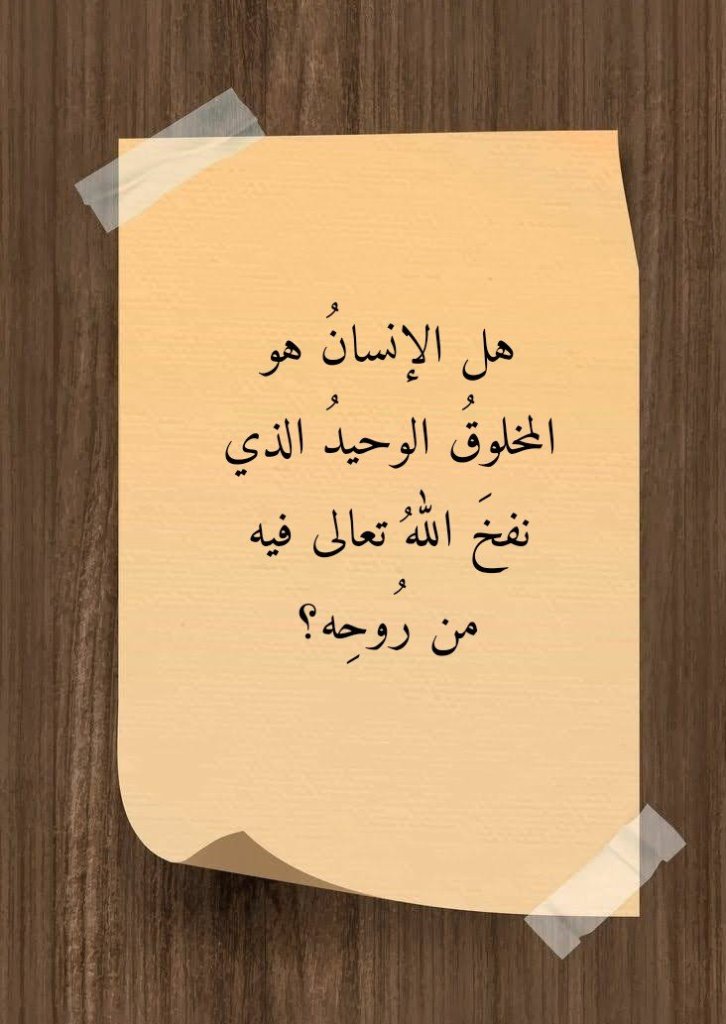 هل الإنسانُ هو
المخلوقُ الوحيدُ الذي
نفخَ اللهُ تعالى فيه
من رُوحِه؟